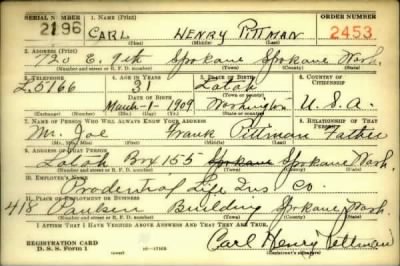 SERIAL NUMBER 1. NAME (Print) ORDER NUMBER
2196 CARL HENRY PITTMAN 2453
(First) (Middle) (Last)
2. ADDRESS (Print)
720 E. 7th Spokane Spokane Wash.
(Number and street or R. F. D. number) (Town) (County) (State)
3. TELEPHONE 4. AGE IN YEARS 5. PLACE OF BIRTH 6. COUNTRY OF CITIZENSHIP
L.5166 31 Latah
DATE OF BIRTH (Town or county)
March-1-1909 Washington U.S.A.
(Exchange) (No.) (Mo.) (Day) (Yr.) (State or country)
7. NAME OF PERSON WHO WILL ALWAYS KNOW YOUR ADDRESS 8. RELATIONSHIP OF THAT PERSON
Mr. Joe Frank Pittman Father
(Mr., Mrs., Miss) (First) (Middle) (Last)
9. ADDRESS OF THAT PERSON
Latah Box 155 Spokane Spokane Wash.
(Number and street or R. F. D. number) (Town) (County) (State)
10. EMPLOYER'S NAME
Prudential Life Ins Co.
11. PLACE OF EMPLOYMENT OR BUSINESS
418 Paulsen Building Spokane Wash.
(Number and street or R. F. D. number) (Town) (County) (State)
I AFFIRM THAT I HAVE VERIFIED ABOVE ANSWERS AND THAT THEY ARE TRUE.
REGISTRATION CARD
D. S. S. Form 1 16—17105 Carl Henry Pittman
(Registrant's signature)